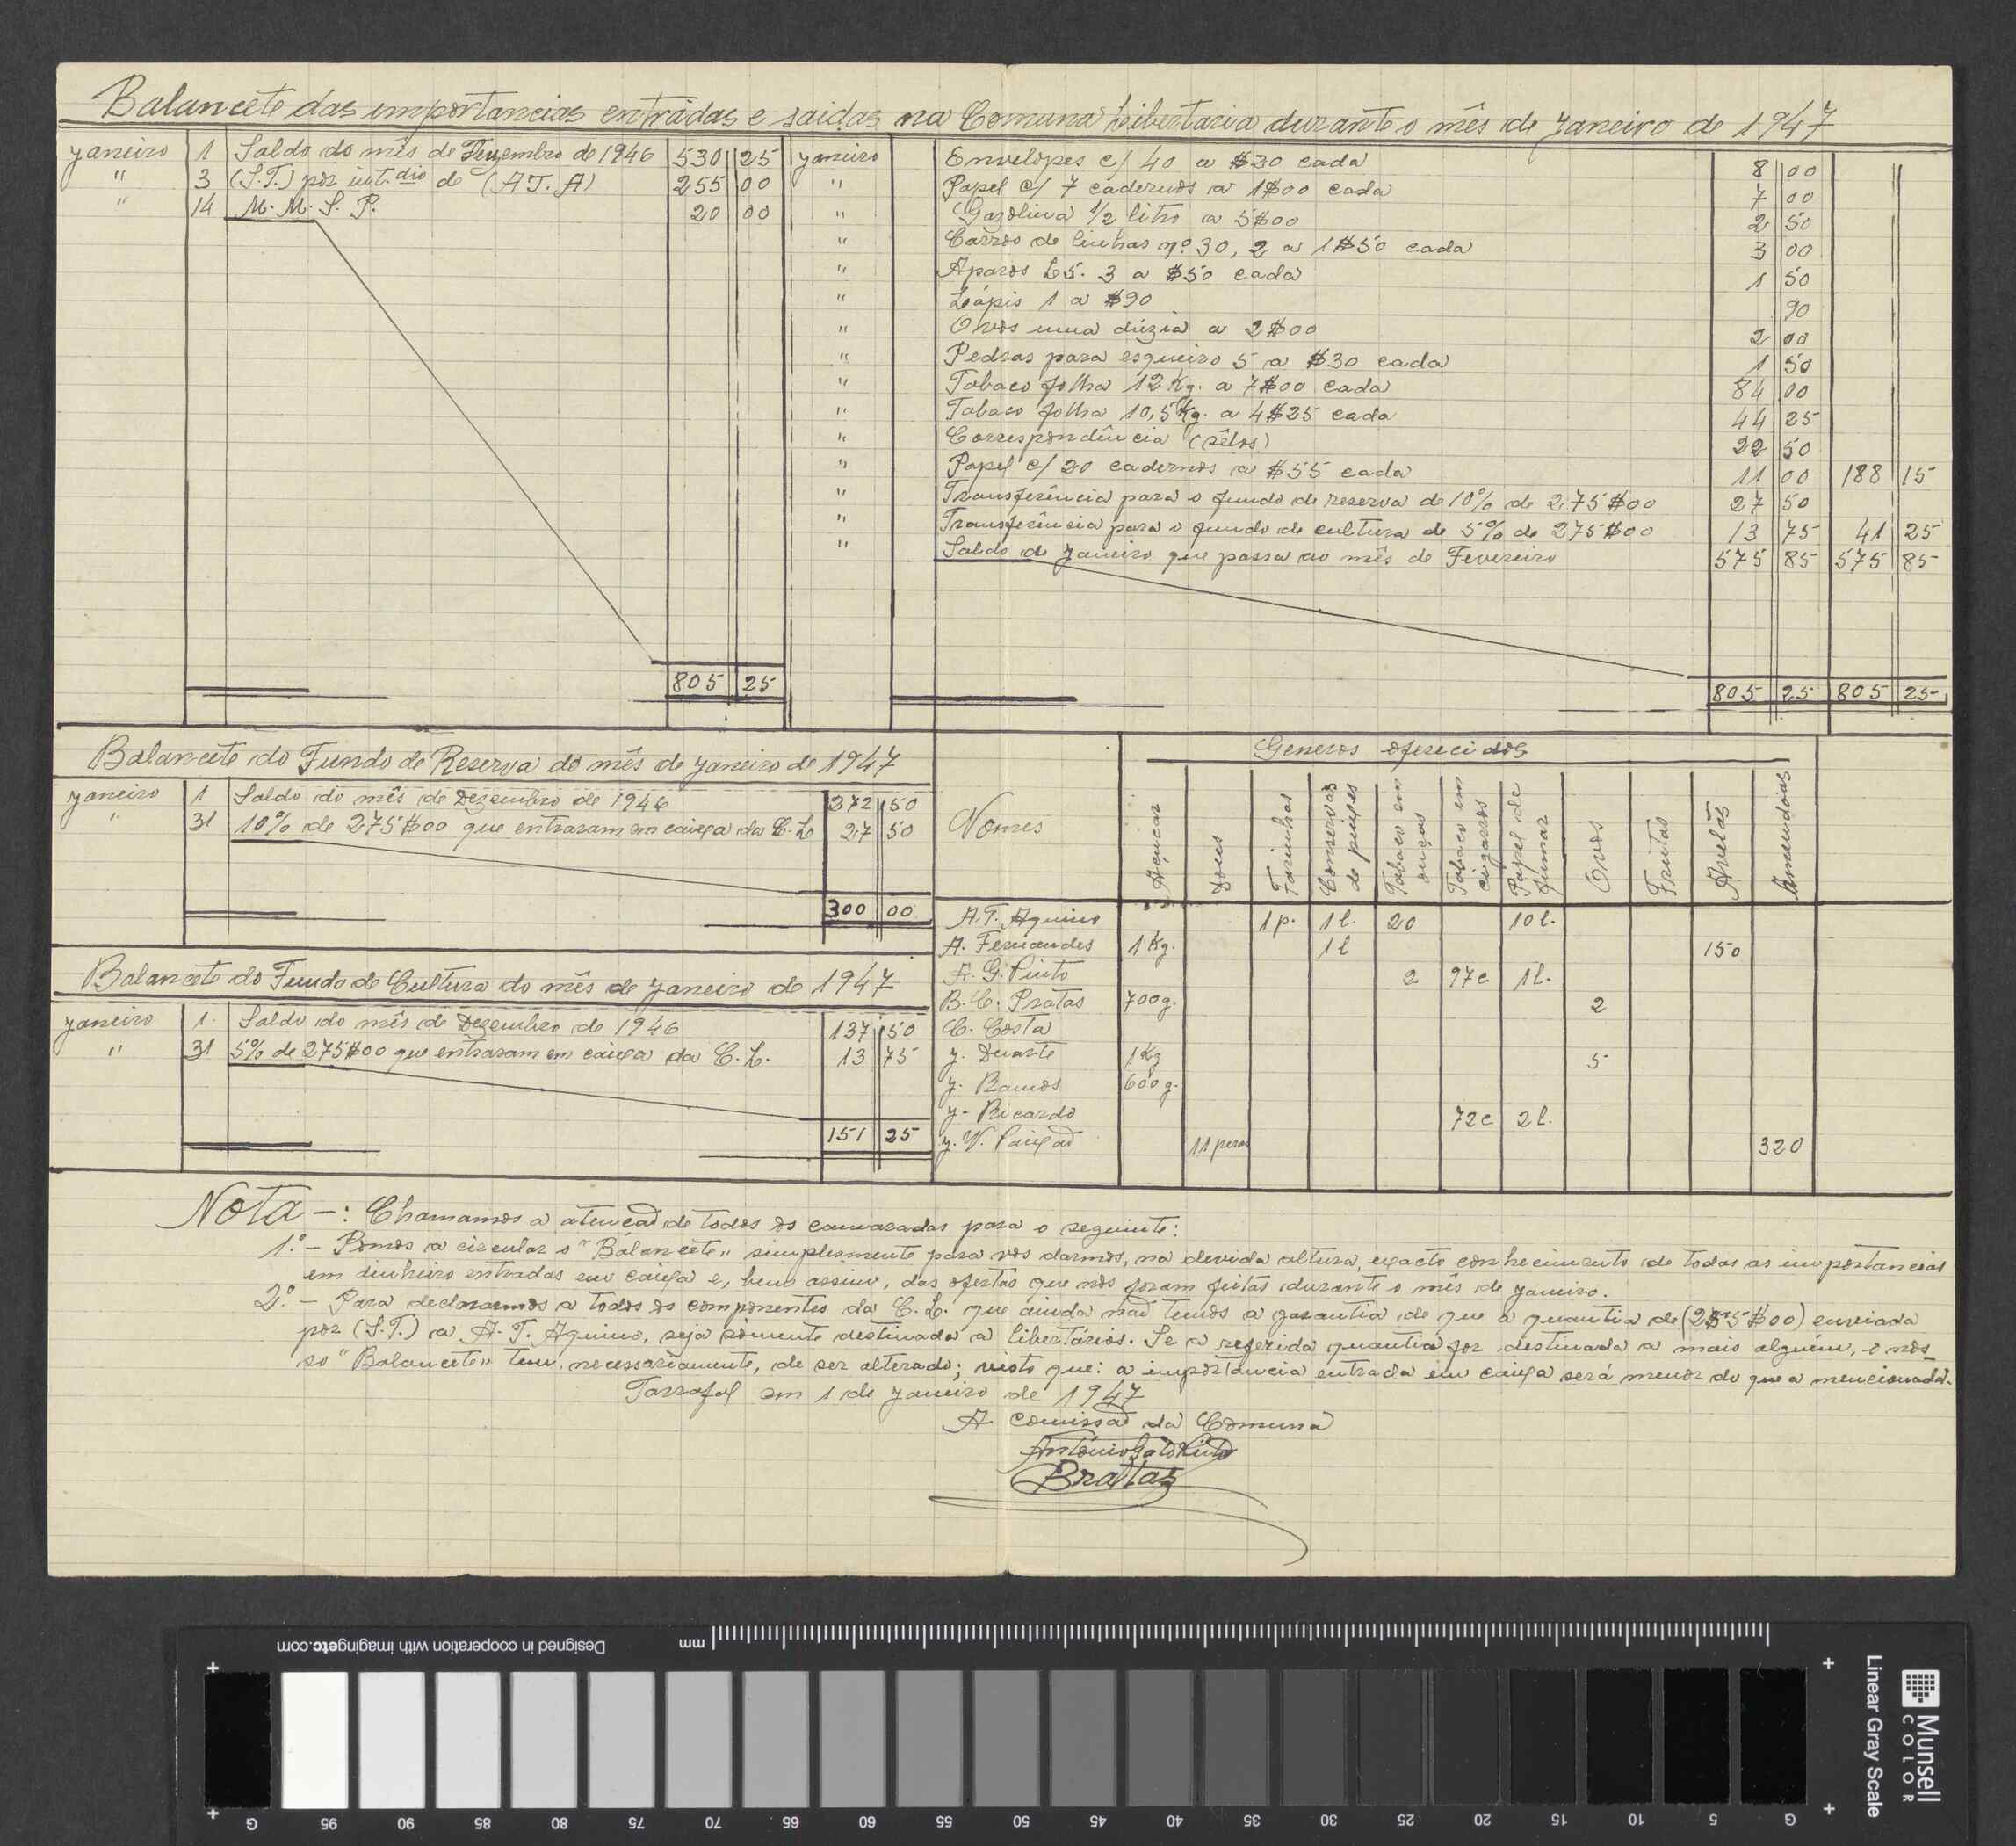 Balancete das importancias entrádas e saidas na Comuna Libertaria durante o mês de Janeiro de 1947
Janeiro 1 Saldo do mês de Dezembro de 1946 530 25
" 3 (S.T.) por int.dio de (A.T.A) 255 00
" 14 M. M. S. P. 20 00
805 25
Janeiro Envelopes c/ 40 a $20 cada 8 00
" Papel c/ 7 cadernos a 1$00 cada 7 00
" Gazolina 1/2 litro a 5$00 2 50
" Carros de linhas nº 30, 2 a 1$50 cada 3 00
" Aparos L5. 3 a $50 cada 1 50
" Lápis 1 a $90 90
" Ovos uma dúzia a 2$00 2 00
" Pedras para esqueiro 5 a $30 cada 1 50
" Tabaco folha 12 Kg. a 7$00 cada 84 00
" Tabaco folha 10,5 Kg. a 4$25 cada 44 25
" Correspondência (sêlos) 22 50
" Papel c/ 20 cadernos a $55 cada 11 00 188 15
" Transferência para o fundo de reserva de 10% de 275$00 27 50
" Transferência para o fundo de cultura de 5% de 275$00 13 75 41 25
" Saldo de Janeiro que passa ao mês de Fevereiro 575 85 575 85
805 25 805 25
Balancete do Fundo de Reserva do mês de Janeiro de 1947
Janeiro 1 Saldo do mês de Dezembro de 1946 272 50
" 31 10% de 275$00 que entraram em caixa da C. L. 27 50
300 00
Balancete do Fundo de Cultura do mês de Janeiro de 1947
Janeiro 1. Saldo do mês de Dezembro de 1946 137 50
" 31 5% de 275$00 que entraram em caixa da C. L. 13 75
151 25
Generos oferecidos
Nomes
Açucar
Doces
Farinhas
Conservas de peixes
Tabaco em onças
Tabaco em cigarros
Papel de fumar
Ovos
Frutas
Avelãs
Amendoas
A. T. Aquino 1 p. 1 l. 20 10 l.
A. Fernandes 1 Kg. 1 l 150
A. G. Pinto 2 97 c 1 l.
B. C. Pratas 700 g. 2
C. Costa
J. Duarte 1 Kg 5
J. Ramos 600 g.
J. Ricardo 72 c 2 l.
J. V. Paixão 11 peças 320
Nota -: Chamamos a atenção de todos os camaradas para o seguinte:
1.º - Pomos a circular o "Balancete" simplesmente para vos darmos, na devida altura, exacto conhecimento de todas as importancias
em dinheiro entradas em caixa e, bem assim, das ofertas que nos foram feitas durante o mês de Janeiro.
2.º - Para declararmos a todos os componentes da C. L. que ainda não temos a garantia de que a quantia de (255$00) enviada
por (S.T.) a A. T. Aquino, seja sòmente destinada a libertários. Se a referida quantia fôr destinada a mais alguém, o nos-
so "Balancete" tem, necessariamente, de ser alterado; visto que: a importância entrada em caixa será menor do que a mencionada.
Tarrafal em 1 de Janeiro de 1947
A comissão da Comuna
António Gato Pinto
Bratas
Designed in cooperation with imagingetc.com
mm
G 95 90 85 80 75 70 65 60 55 50 45 40 35 30 25 20 15 10 5 G
Linear Gray Scale
Munsell
COLOR